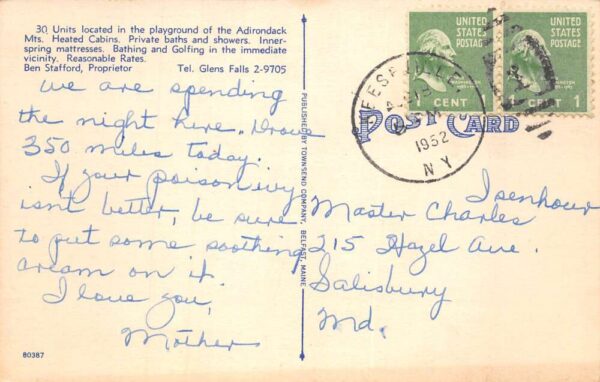 30 Units located in the playground of the Adirondack
Mts. Heated Cabins. Private baths and showers. Inner-
spring mattresses. Bathing and Golfing in the immediate
vicinity. Reasonable Rates.
Ben Stafford, Proprietor Tel. Glens Falls 2-9705
We are spending
the night here. Drove
350 miles today.
If your poison ivy
isn't better, be sure
to put some soothing
cream on it.
I love you,
Mother
80387
PUBLISHED BY TOWNSEND COMPANY, BELFAST, MAINE
UNITED
STATES
POSTAGE
1 CENT
UNITED
STATES
POSTAGE
CENT 1
KEESEVILLE,
1952
N Y
POST CARD
Master Charles Isenhour
215 Hazel Ave.
Salisbury
Md.